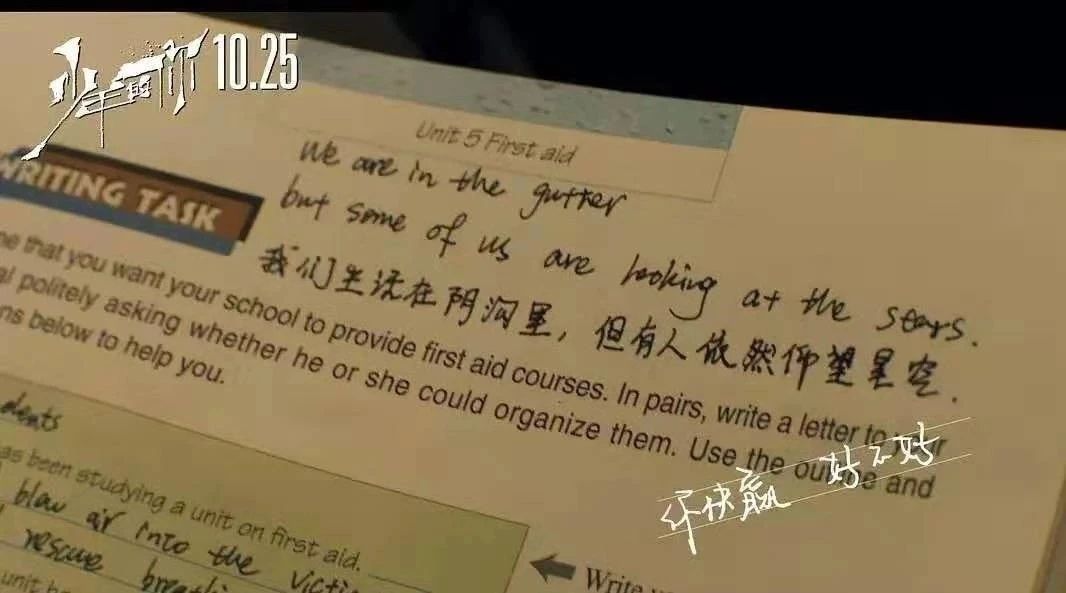 少年的你 10.25
Unit 5 First aid
We are in the gutter
but some of us are looking at the stars.
我们生活在阴沟里，但有人依然仰望星空.
WRITING TASK
that you want your school to provide first aid courses. In pairs, write a letter to your
politely asking whether he or she could organize them. Use the outline and
below to help you.
你快赢 好不好
has been studying a unit on first aid.
blow air into the
rescue
unit
Write